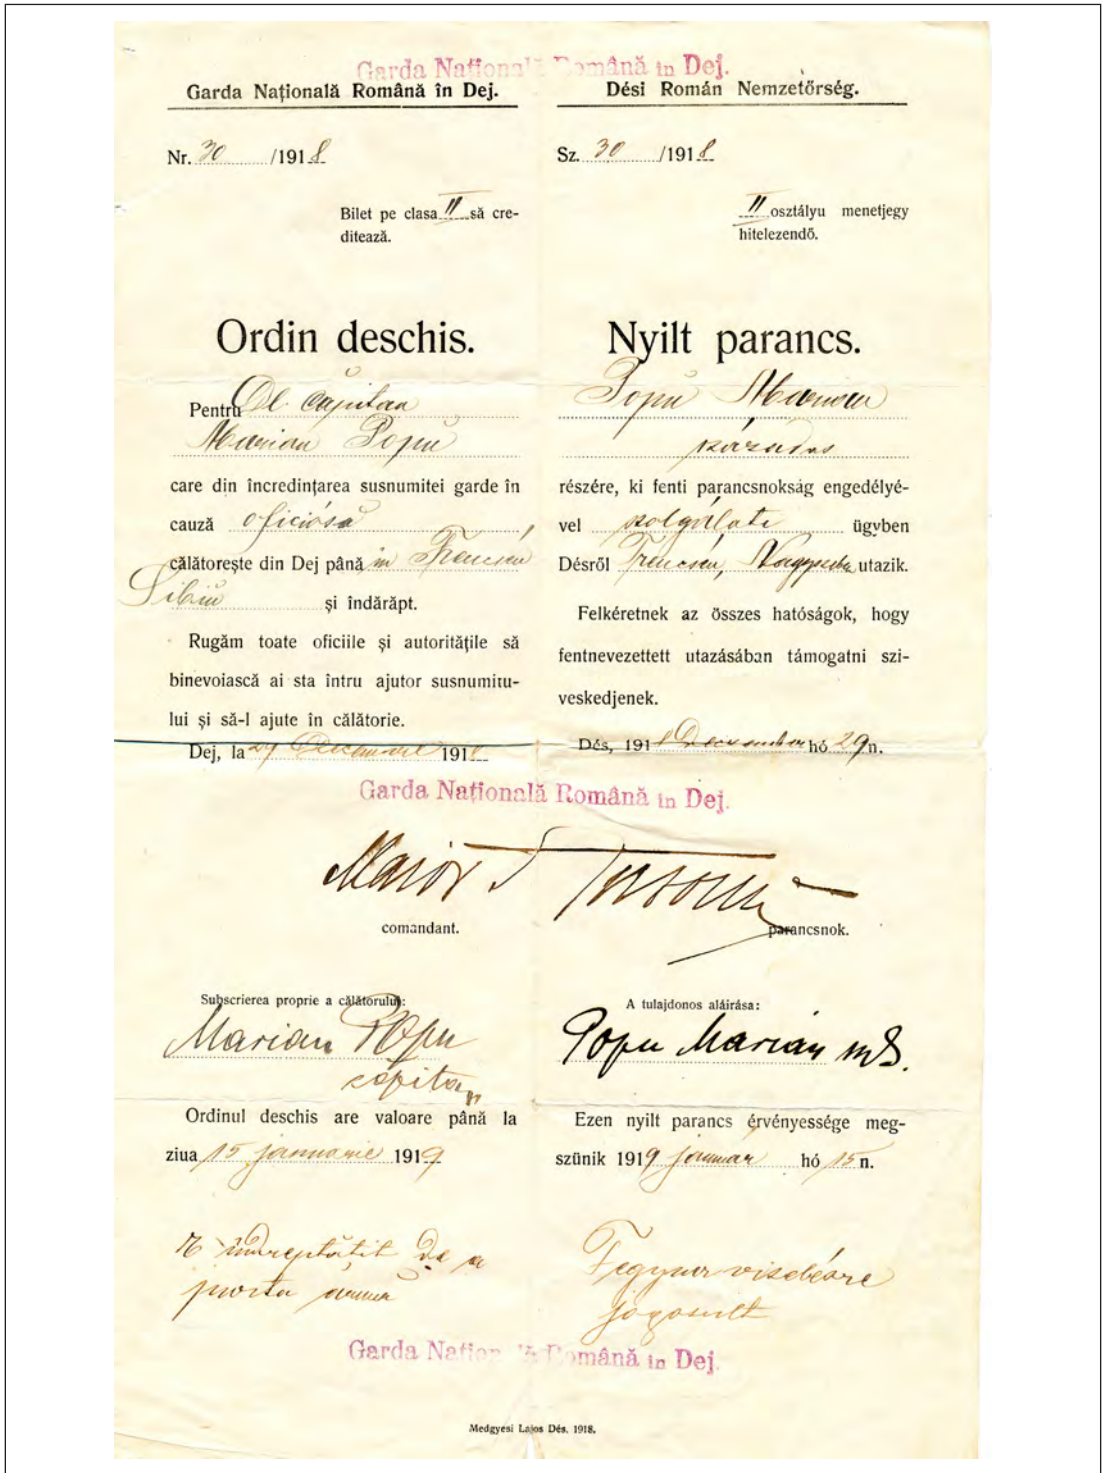 Garda Națională Română în Dej.
Garda Națională Română în Dej.
Nr. 30 /1918
Bilet pe clasa II să cre-
ditează.
Ordin deschis.
Pentru Dl. căpitan
Marian Popu
care din încredințarea susnumitei garde în
cauză oficiósă
călătorește din Dej până in Trencsén
Sibiu și îndărăpt.
Rugăm toate oficiile și autoritățile să
binevoiască ai sta întru ajutor susnumitu-
lui și să-l ajute în călătorie.
Dej, la 29 Decemvrie 1918
Dési Román Nemzetőrség.
Sz. 30 /1918
II osztályu menetjegy
hitelezendő.
Nyilt parancs.
Popu Marian
százados
részére, ki fenti parancsnokság engedélyé-
vel szolgálati ügyben
Désről Trencsén, Nagyszeben utazik.
Felkéretnek az összes hatóságok, hogy
fentnevezettett utazásában támogatni szi-
veskedjenek.
Dés, 1918 December hó 29 n.
Garda Națională Română în Dej.
Maior
comandant.
parancsnok.
Subscrierea proprie a călătorului:
Marian Popu
căpitan
Ordinul deschis are valoare până la
ziua 15 januarie 1919
E îndreptățit de a
purta armă
A tulajdonos aláirása:
Popu Marián
Ezen nyilt parancs érvényessége meg-
szünik 1919 januar hó 15 n.
Fegyver viselésre
jogosult
Garda Națională Română în Dej.
Medgyesi Lajos Dés. 1918.